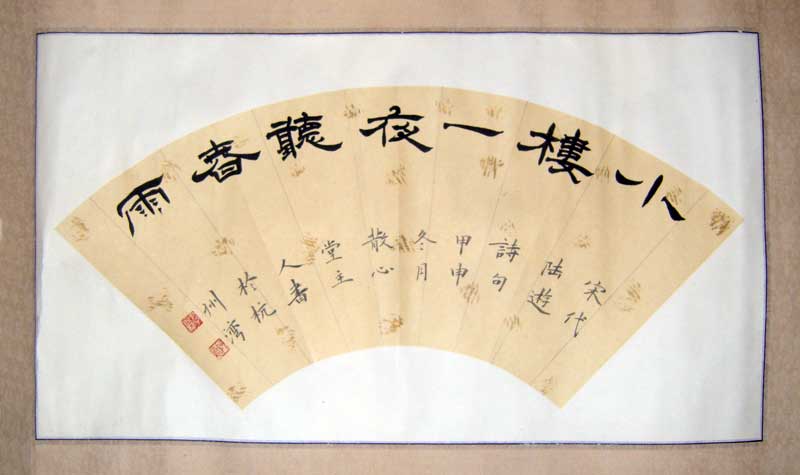 小樓一夜聽春雨
宋代
陆遊
詩句
甲申
冬月
散心
堂主
人書
於杭
州湾